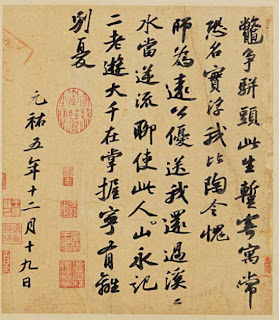 鼈争駢頭此生蹔寄寓常
恐名實浮我比陶令愧
師為遠公優送我還過溪〻
水當逆流聊使此人山永記
二老遊大千在掌握寧有離
別憂
元祐五年十二月十九日